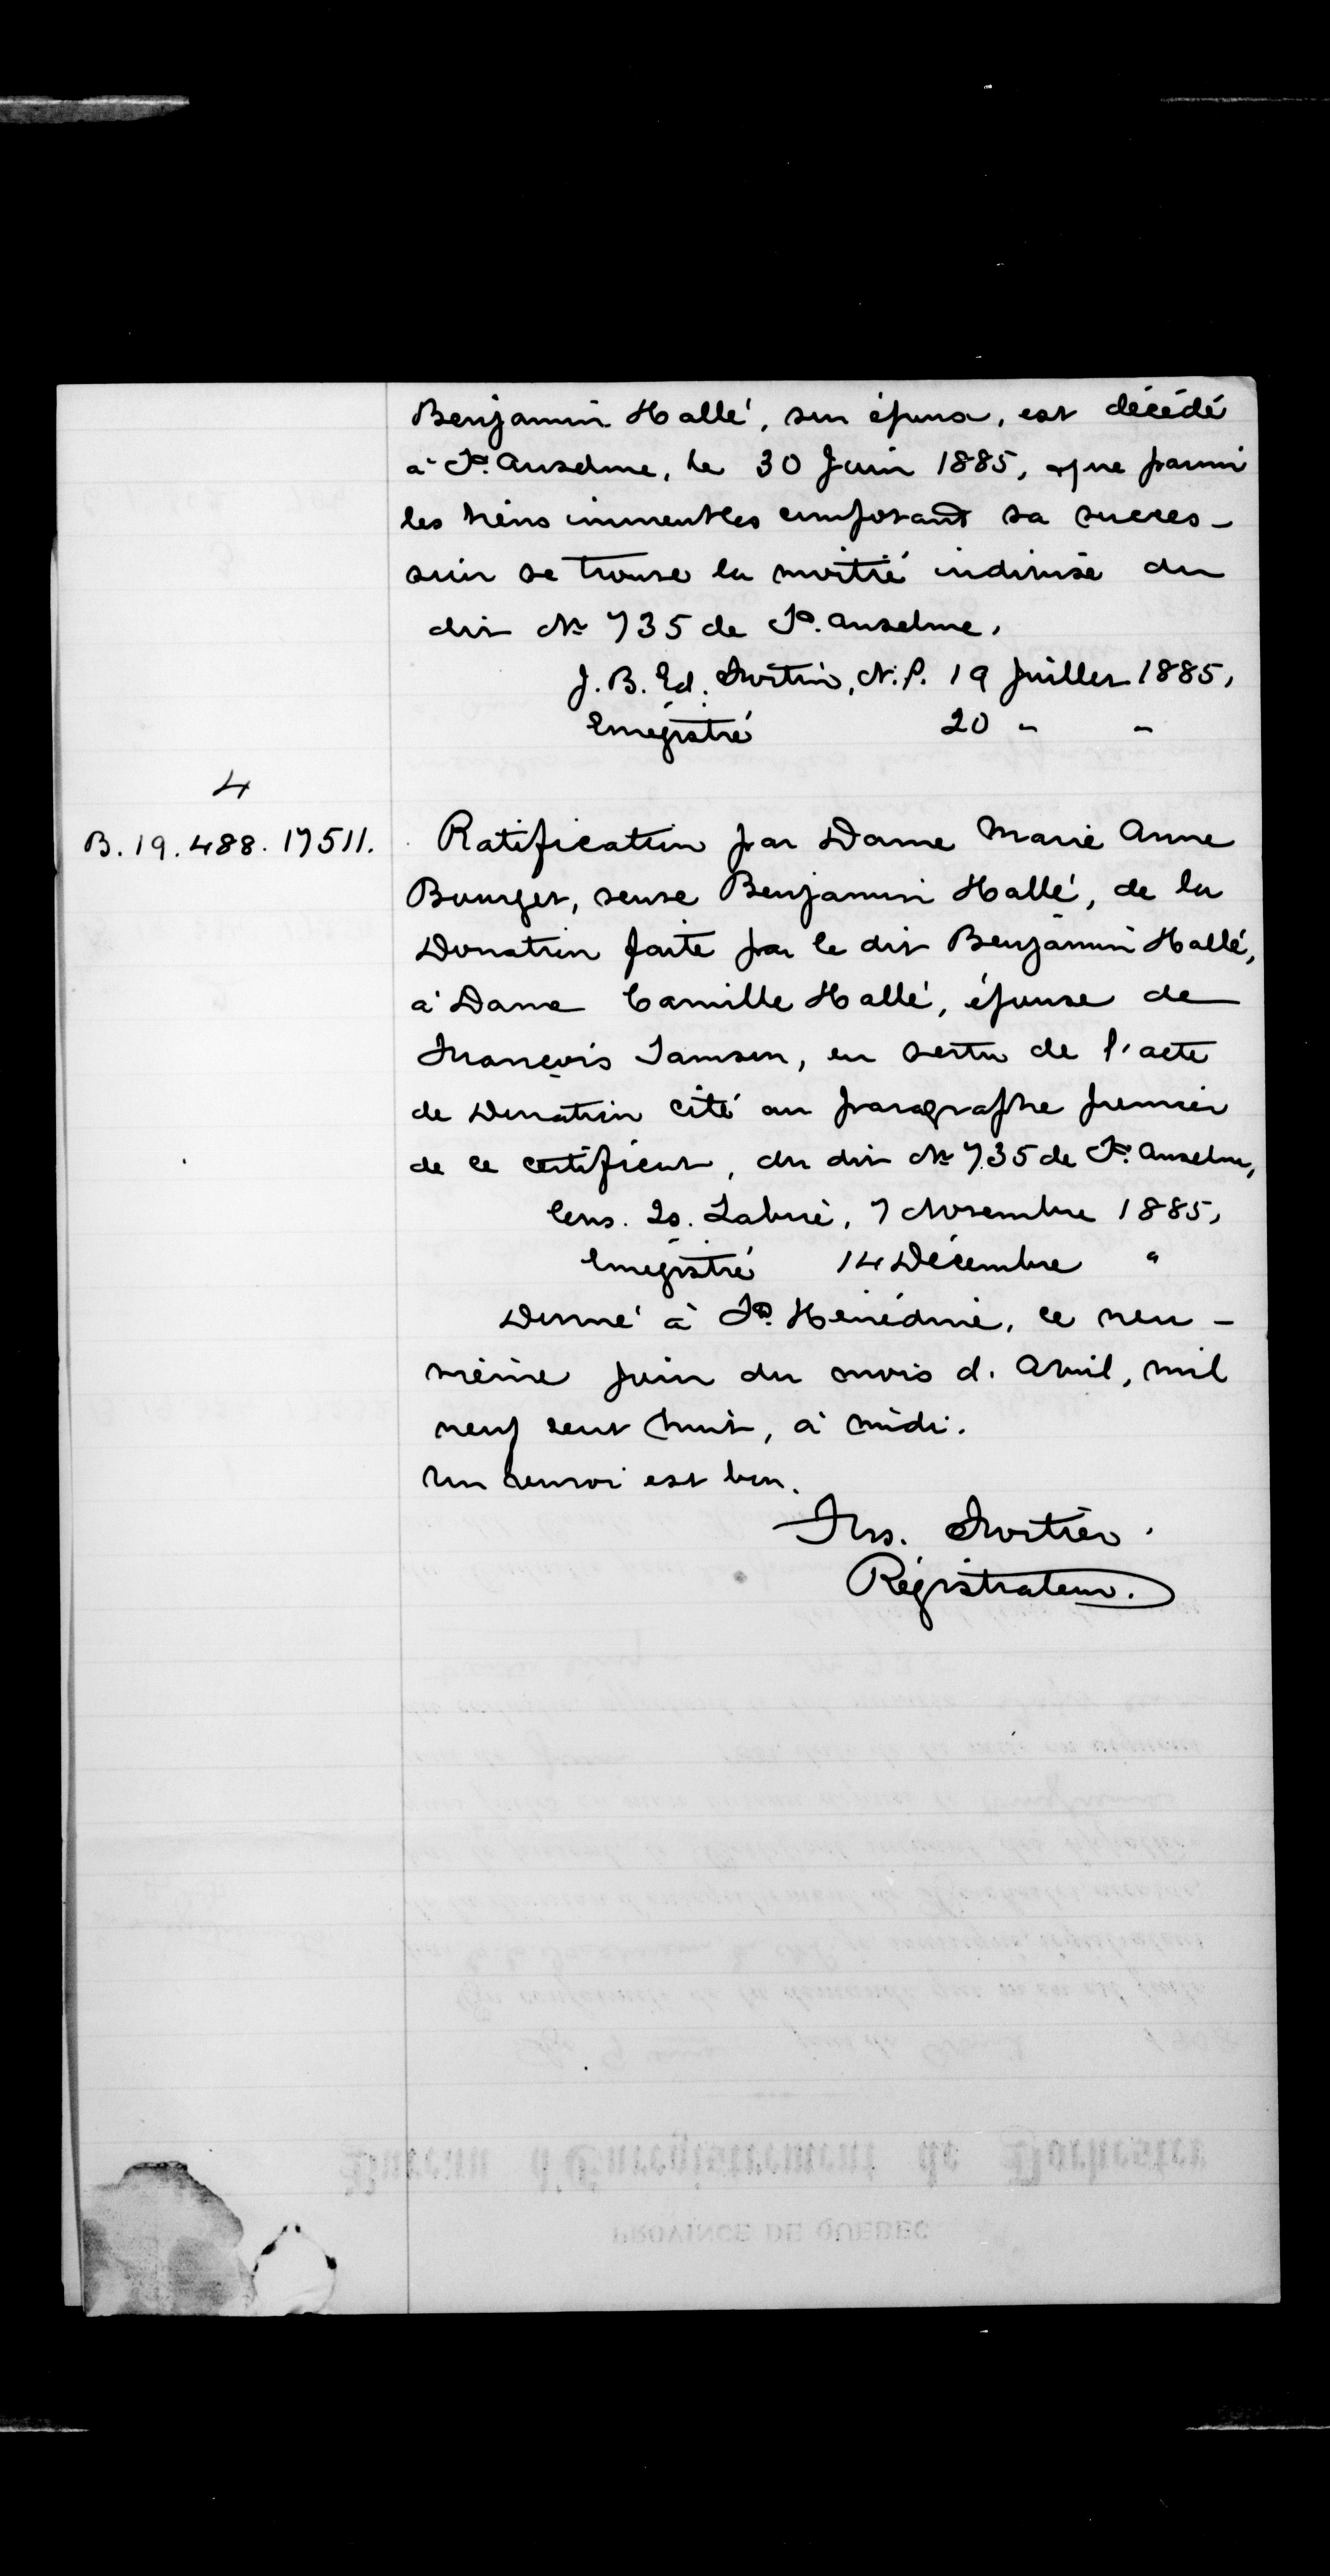 Benjamin Hallé, son époux, est décédé
à St. Anselme, le 30 Juin 1885, & que parmi
les biens immeubles composant sa succes-
sion se trouve la moitié indivise du
dit No 735 de St. Anselme.
J. B. Ed. Fortin, N. P. 19 Juillet 1885,
Enrégistré 20 " "
4
B. 19. 488. 17511.
Ratification par Dame Marie Anne
Bourget, veuve Benjamin Hallé, de la
Donation faite par le dit Benjamin Hallé,
à Dame Camille Hallé, épouse de
François Samson, en vertu de l'acte
de Donation cité au paragraphe premier
de ce certificat, du dit No 735 de St. Anselme,
Cons. Is. Labrie, 7 Novembre 1885,
Enrégistré 14 Décembre "
Donné à Ste. Hénédine, ce neu-
vième jour du mois d'Avril, mil
neuf cent huit, à midi.
Un renvoi est bon.
Frs. Fortier.
Régistrateur.
Bureau d'Enregistrement de Dorchester
PROVINCE DE QUEBEC